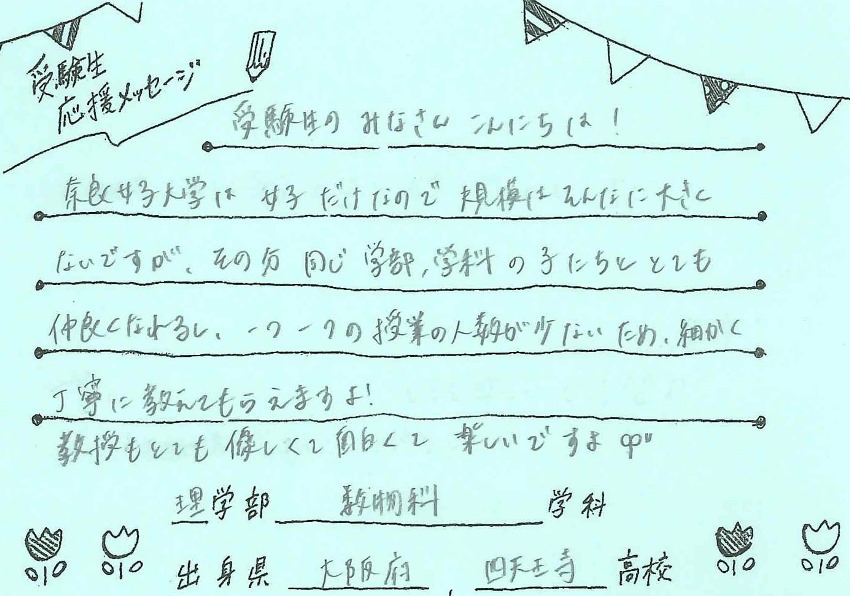 受験生
応援メッセージ
受験生の みなさん こんにちは！
奈良女子大学は 女子だけなので 規模はそんなに大きく
ないですが、その分 同じ 学部、学科の子たちと とても
仲良くなれるし、一つ一つの授業の人数が少ないため、細かく
丁寧に教えてもらえますよ！
教授もとても優しくて面白くて 楽しいですよ
理学部 数物科 学科
出身県 大阪府 、 四天王寺 高校